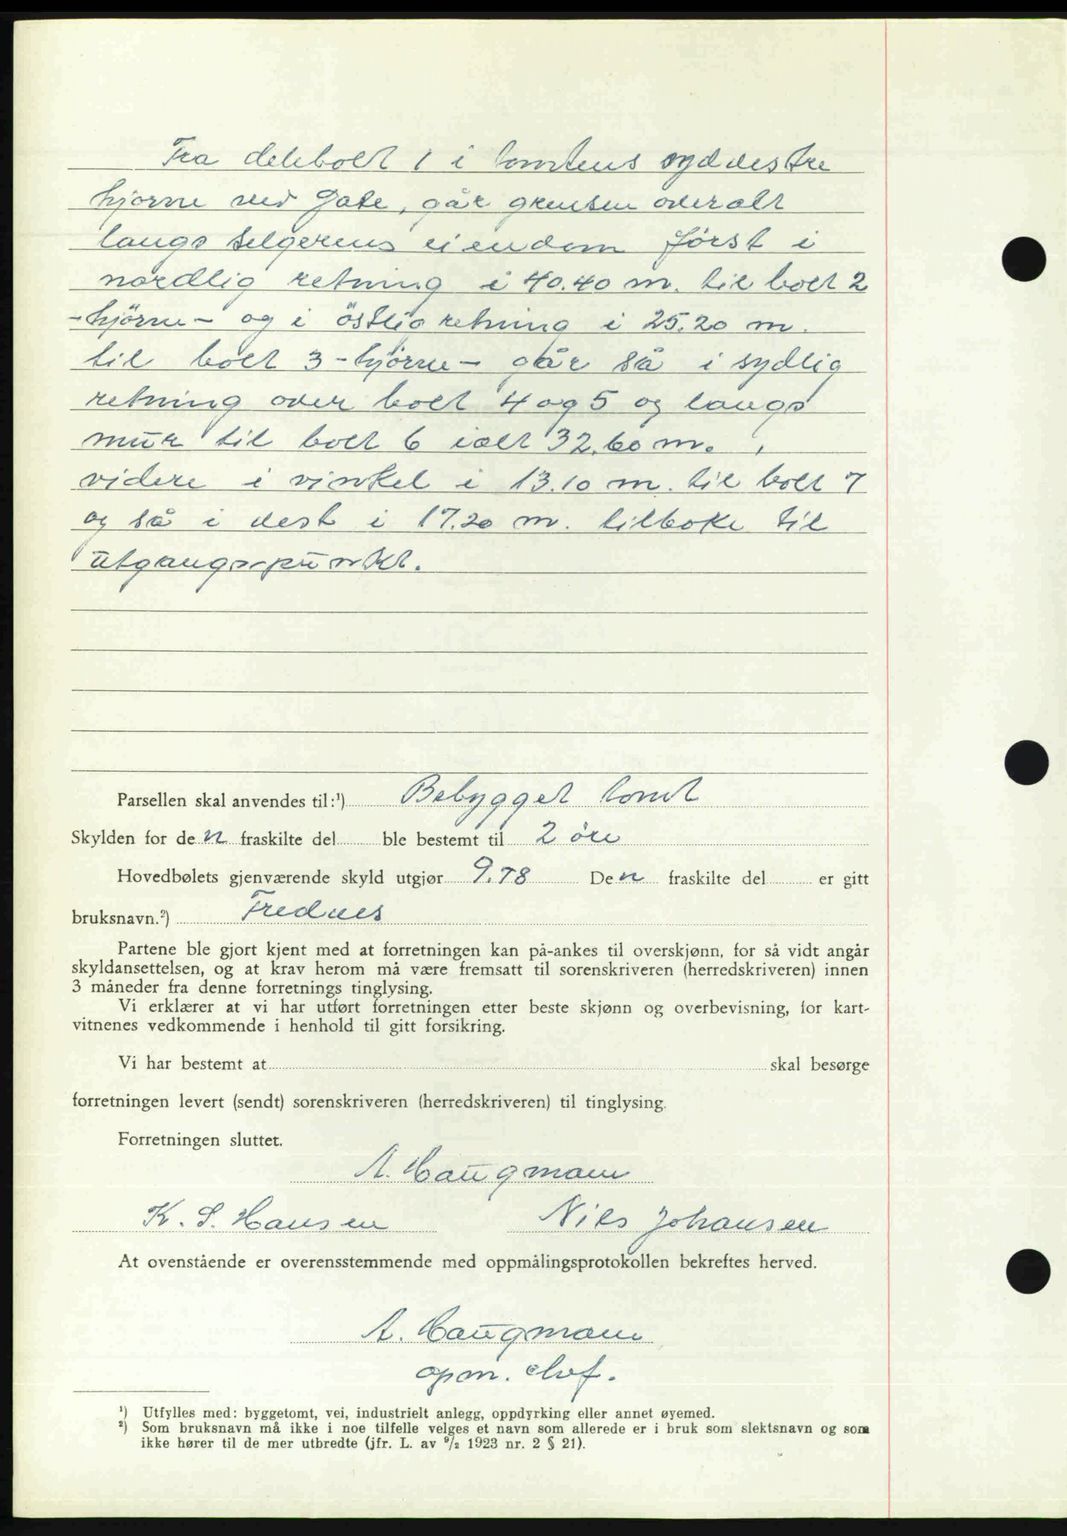 Fra delebolt 1 i tomtens sydvestre
hjörne ved Gate, går grensen overalt
langs selgerens eiendom först i
nordlig retning i 40.40 m. til bolt 2
-hjörne- og i östlig retning i 25.20 m.
til bolt 3 -hjörne- går så i sydlig
retning over bolt 4 og 5 og langs
mur til bolt 6 ialt 32.60 m. ,
videre i vinkel i 13.10 m. til bolt 7
og så i vest i 17.20 m. tilbake til
utgangspunkt.
Parsellen skal anvendes til:¹) Bebygget tomt
Skylden for de n fraskilte del ble bestemt til 2 öre
Hovedbølets gjenværende skyld utgjør 9.78 De n fraskilte del er gitt
bruksnavn.²) Frednes
Partene ble gjort kjent med at forretningen kan på-ankes til overskjønn, for så vidt angår
skyldansettelsen, og at krav herom må være fremsatt til sorenskriveren (herredskriveren) innen
3 måneder fra denne forretnings tinglysing.
Vi erklærer at vi har utført forretningen etter beste skjønn og overbevisning, for kart-
vitnenes vedkommende i henhold til gitt forsikring.
Vi har bestemt at skal besørge
forretningen levert (sendt) sorenskriveren (herredskriveren) til tinglysing.
Forretningen sluttet.
A. Haugmann
K. S. Hansen Nils Johansen
At ovenstående er overensstemmende med oppmålingsprotokollen bekreftes herved.
A. Haugmann
opm. chef.
¹) Utfylles med: byggetomt, vei, industrielt anlegg, oppdyrking eller annet øyemed.
²) Som bruksnavn må ikke i noe tilfelle velges et navn som allerede er i bruk som slektsnavn og som
ikke hører til de mer utbredte (jfr. L. av ⁹/₂ 1923 nr. 2 § 21).